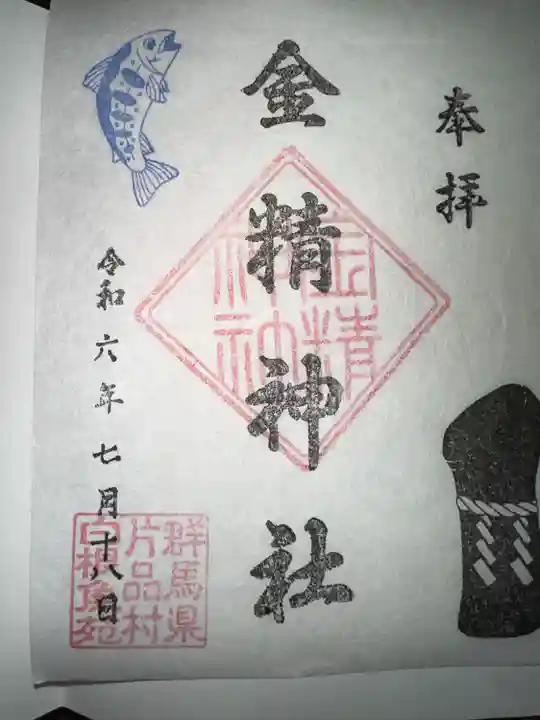 奉拝
金精神社
金精
神社
令和六年七月十八日
群馬県
片品村
白根魚苑